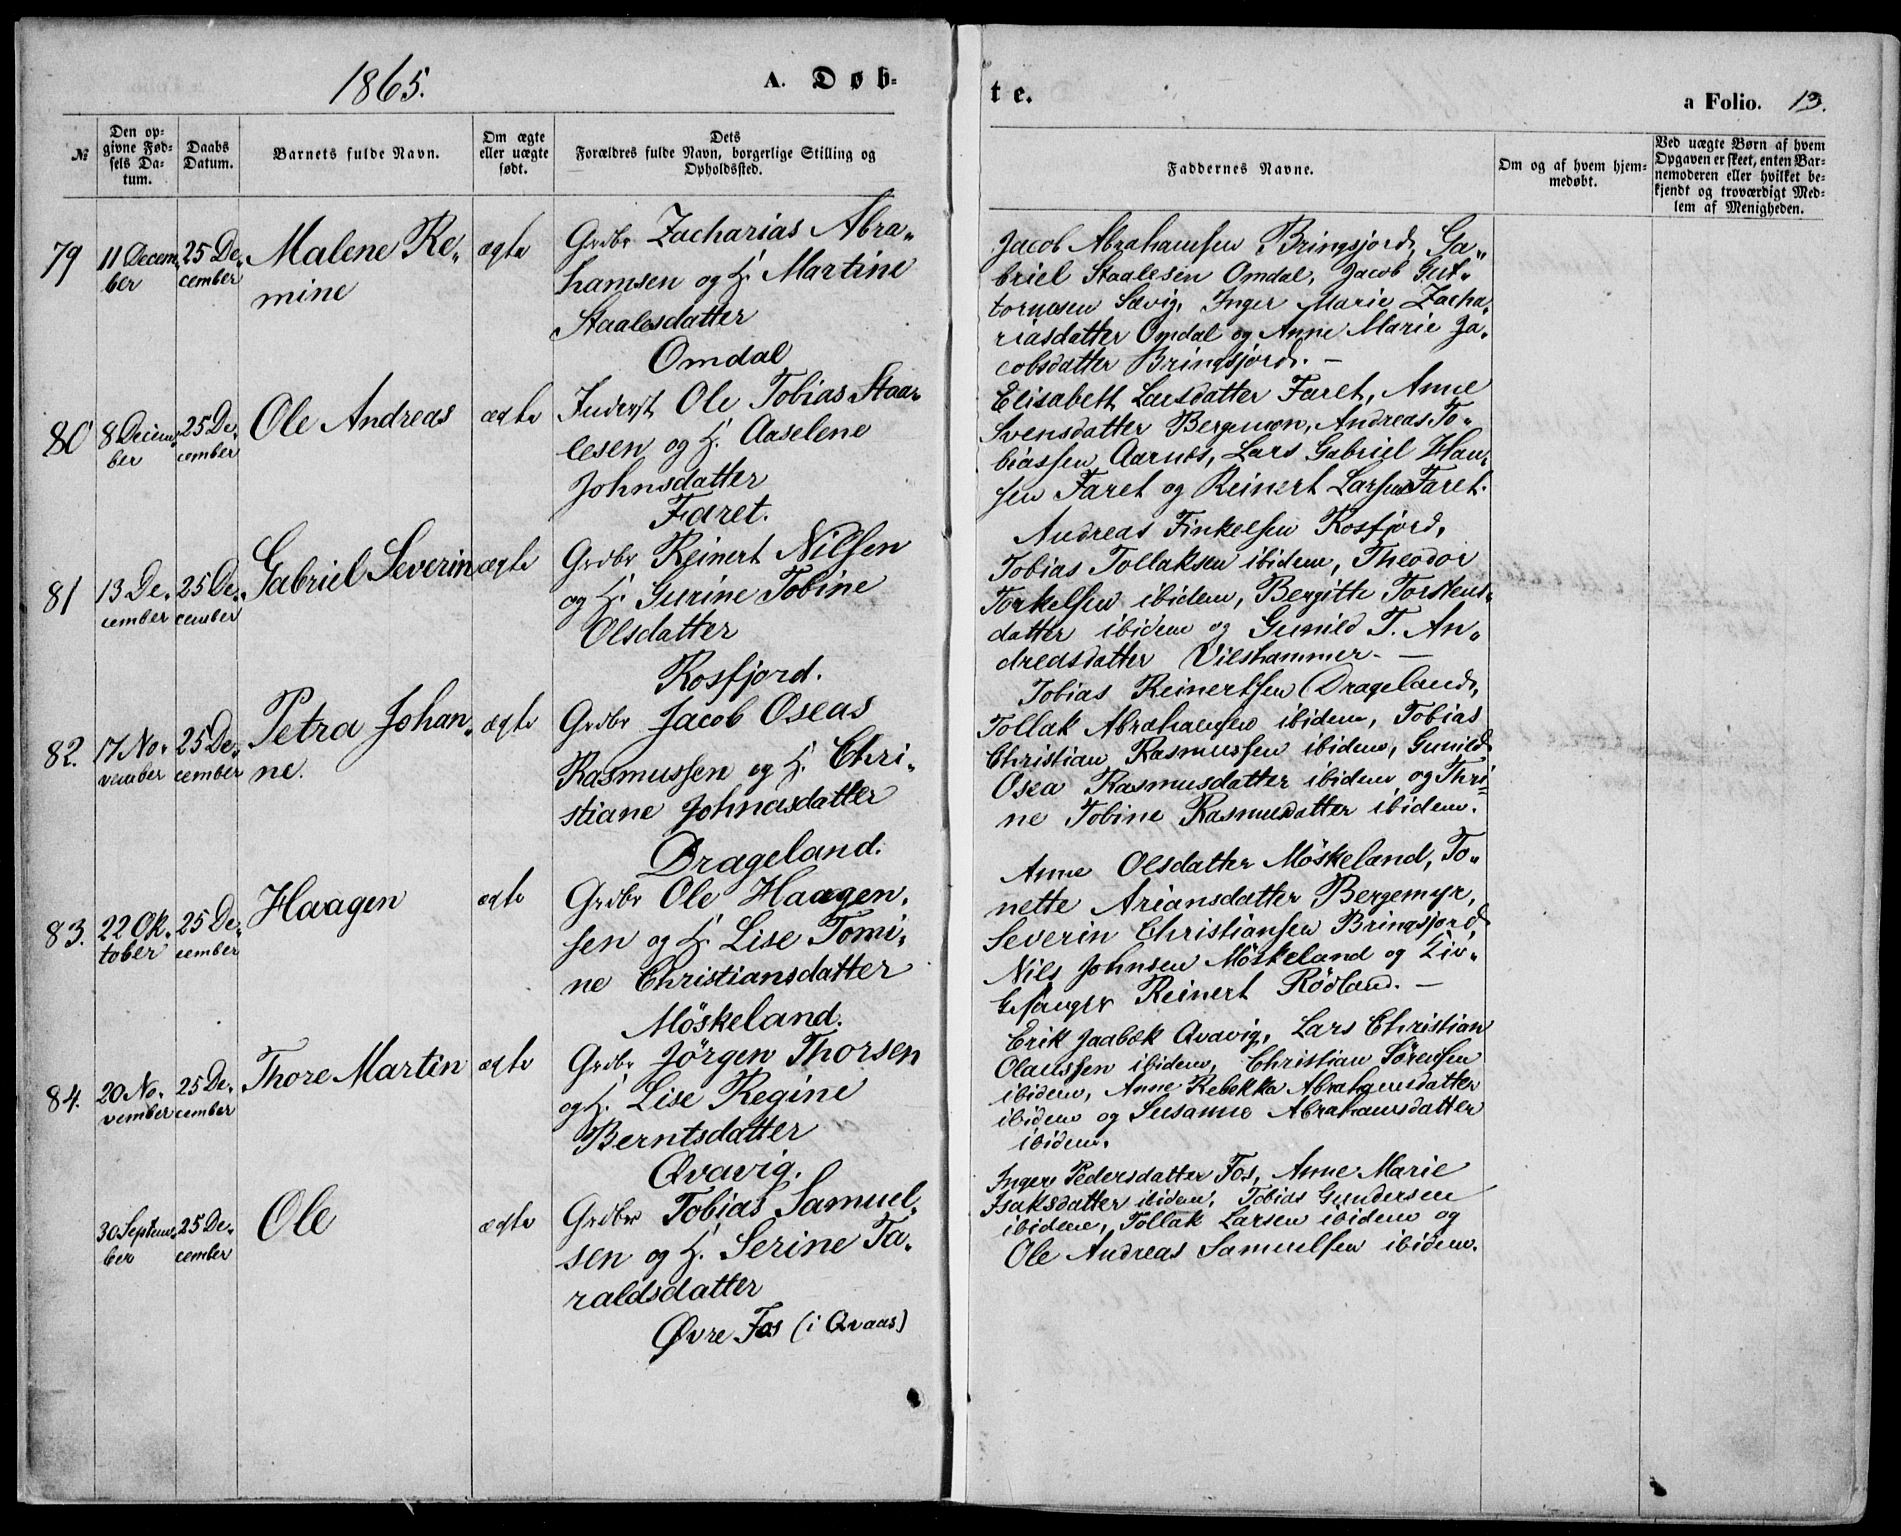 1865.
A. Døb-
te.
a Folio. 13.
№
Den op-
givne Fød-
sels Da-
tum.
Daabs
Datum.
Barnets fulde Navn.
Om ægte
eller uægte
født.
Dets
Forældres fulde Navn, borgerlige Stilling og
Opholdssted.
Faddernes Navne.
Om og af hvem hjem-
medøbt.
Ved uægte Børn af hvem
Opgaven er skeet, enten Bar-
nemoderen eller hvilket be-
kjendt og troværdigt Med-
lem af Menigheden.
79
11 Decem-
ber
25 De-
cember
Malene Re-
mine
ægte
Grdbr Zacharias Abra-
hamsen og H. Martine
Staalesdatter
Omdal
Jacob Abrahamsen Bringsjord, Ga-
briel Staalesen Omdal, Jacob Gut-
tormsen Sævig, Inger Marie Zacha-
riasdatter Omdal og Anne Marie Ja-
cobsdatter Bringsjord. —
80
8 Decem-
ber
25 De-
cember
Ole Andreas
ægte
Inderst Ole Tobias Staa-
lesen og H. Aaselene
Johnsdatter
Faret.
Elisabeth Larsdatter Faret, Anne
Svensdatter Andreas To-
biassen Aarnes, Lars Gabriel Han-
sen Faret og Reinert Larsen Faret.
81
13 De-
cember
25 De-
cember
Gabriel Severin
ægte
Grdbr Reinert Nilsen
og H. Gurine Tobine
Olsdatter
Rosfjord.
Andreas Rosfjord,
Tobias Tollaksen ibidem, Theodor
Torkelsen ibidem, Bergitte Torstens-
datter ibidem og Gunild T. An-
dreasdatter Vilshammer. —
82.
17 No-
vember
25 De-
cember
Petra Johan-
ne.
ægte
Grdbr Jacob Oseas
Rasmussen og H. Chri-
stiane Johnasdatter
Drageland.
Tobias Reinertsen Drageland,
Tollak Abrahamsen ibidem, Tobias
Christian Rasmussen ibidem, Gunild
Osea Rasmusdatter ibidem og Thri-
ne Tobine Rasmusdatter ibidem.
83.
22 Ok-
tober
25 De-
cember
Haagen
ægte
Grdbr Ole Haagen-
sen og H. Lise Tomi-
ne Christiansdatter
Möskeland.
Anne Olsdatter Möskeland, To-
nette Ariansdatter Bergemyr,
Severin Christiansen Bringsjord,
Nils Johnsen Möskeland og
Reinert Rödland. —
84.
20 No-
vember
25 De-
cember
Thore Martin
ægte
Grdbr Jörgen Thorsen
og H. Lise Regine
Berntsdatter
Qvavig.
Erik Jaabæk Qvavig, Lars Christian
Olaussen ibidem, Christian Sörensen
ibidem, Anne Rebekka Abrahamsdatter
ibidem og Susanne Abrahamsdatter
ibidem.
30 Septem-
ber
25 De-
cember
Ole
ægte
Grdbr Tobias Samuel-
sen og H. Serine Ta-
raldsdatter
Øvre Fos (i Qvaas)
Inger Pedersdatter Fos, Anne Marie
Isaksdatter ibidem, Tobias Gundersen
ibidem, Tollak Larsen ibidem og
Ole Andreas Samuelsen ibidem.